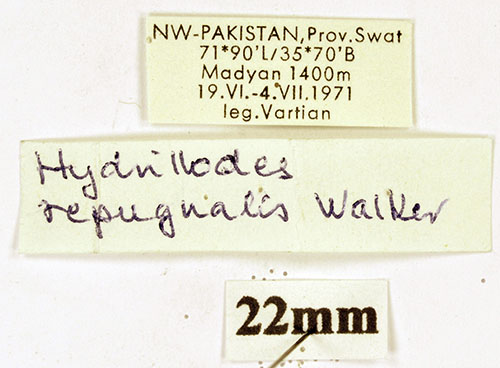 NW-PAKISTAN,Prov.Swat
71*90'L/35*70'B
Madyan 1400m
19.VI.-4.VII.1971
leg.Vartian
Hydrillodes
repugnalis Walker
22mm